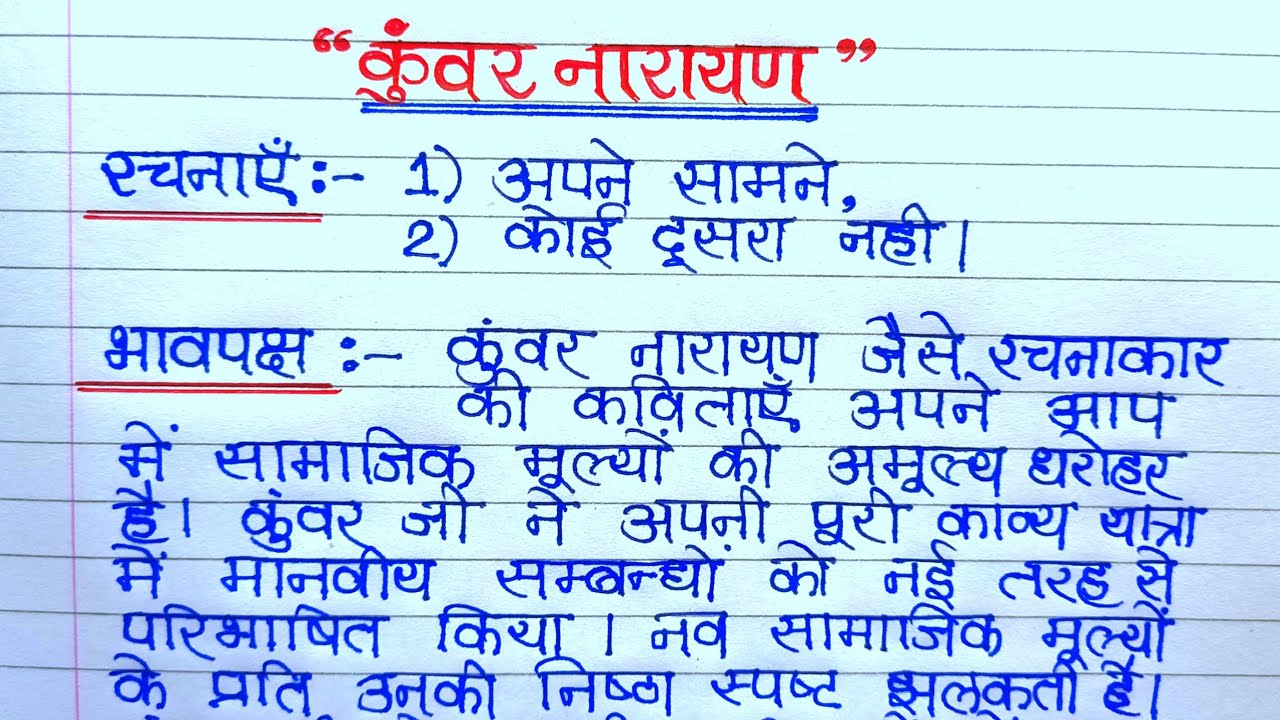 “कुंवर नारायण”
रचनाएँ :- 1) अपने सामने,
2) कोई दूसरा नही।
भावपक्ष :- कुंवर नारायण जैसे रचनाकार
की कविताएँ अपने आप
में सामाजिक मूल्यों की अमूल्य धरोहर
है। कुंवर जी ने अपनी पूरी काव्य यात्रा
में मानवीय सम्बन्धों को नई तरह से
परिभाषित किया। नव सामाजिक मूल्यों
के प्रति उनकी निष्ठा स्पष्ट झलकती है।